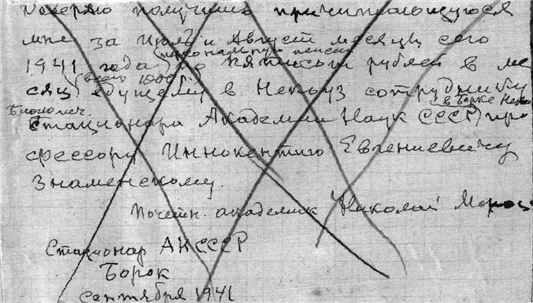 Доверяю получить причитающуюся
мне за Июль и Август месяцы сего
(персональную пенсию)
1941 года по пятисот рублей в ме
(всего 1000)
сяц едущему в Некоуз сотруднику
(в Борке
Стационара Академии Наук СССР) про
фессору Иннокентию Евгениевичу
Знаменскому.
Почетн. академик Николай Мороз
Стационар АН СССР
Борок
Сентября 1941